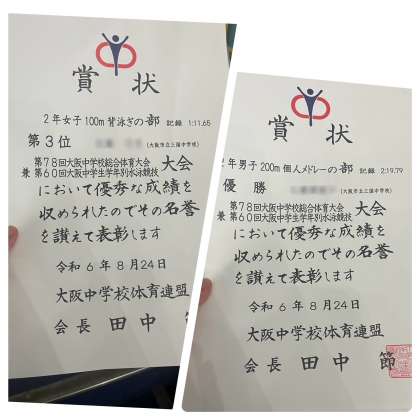 賞状
2年女子100m背泳ぎの部 記録 1:11.65
第3位
(大阪市立三稜中学校)
第78回大阪中学校総合体育大会
兼 第60回大阪中学生学年別水泳競技 大会
において優秀な成績を
収められたのでその名誉
を讃えて表彰します
令和6年8月24日
大阪中学校体育連盟
会長 田中 節
賞状
2年男子200m個人メドレーの部 記録 2:19.79
優勝
(大阪市立三稜中学校)
第78回大阪中学校総合体育大会
兼 第60回大阪中学生学年別水泳競技 大会
において優秀な成績を
収められたのでその名誉
を讃えて表彰します
令和6年8月24日
大阪中学校体育連盟
会長 田中 節